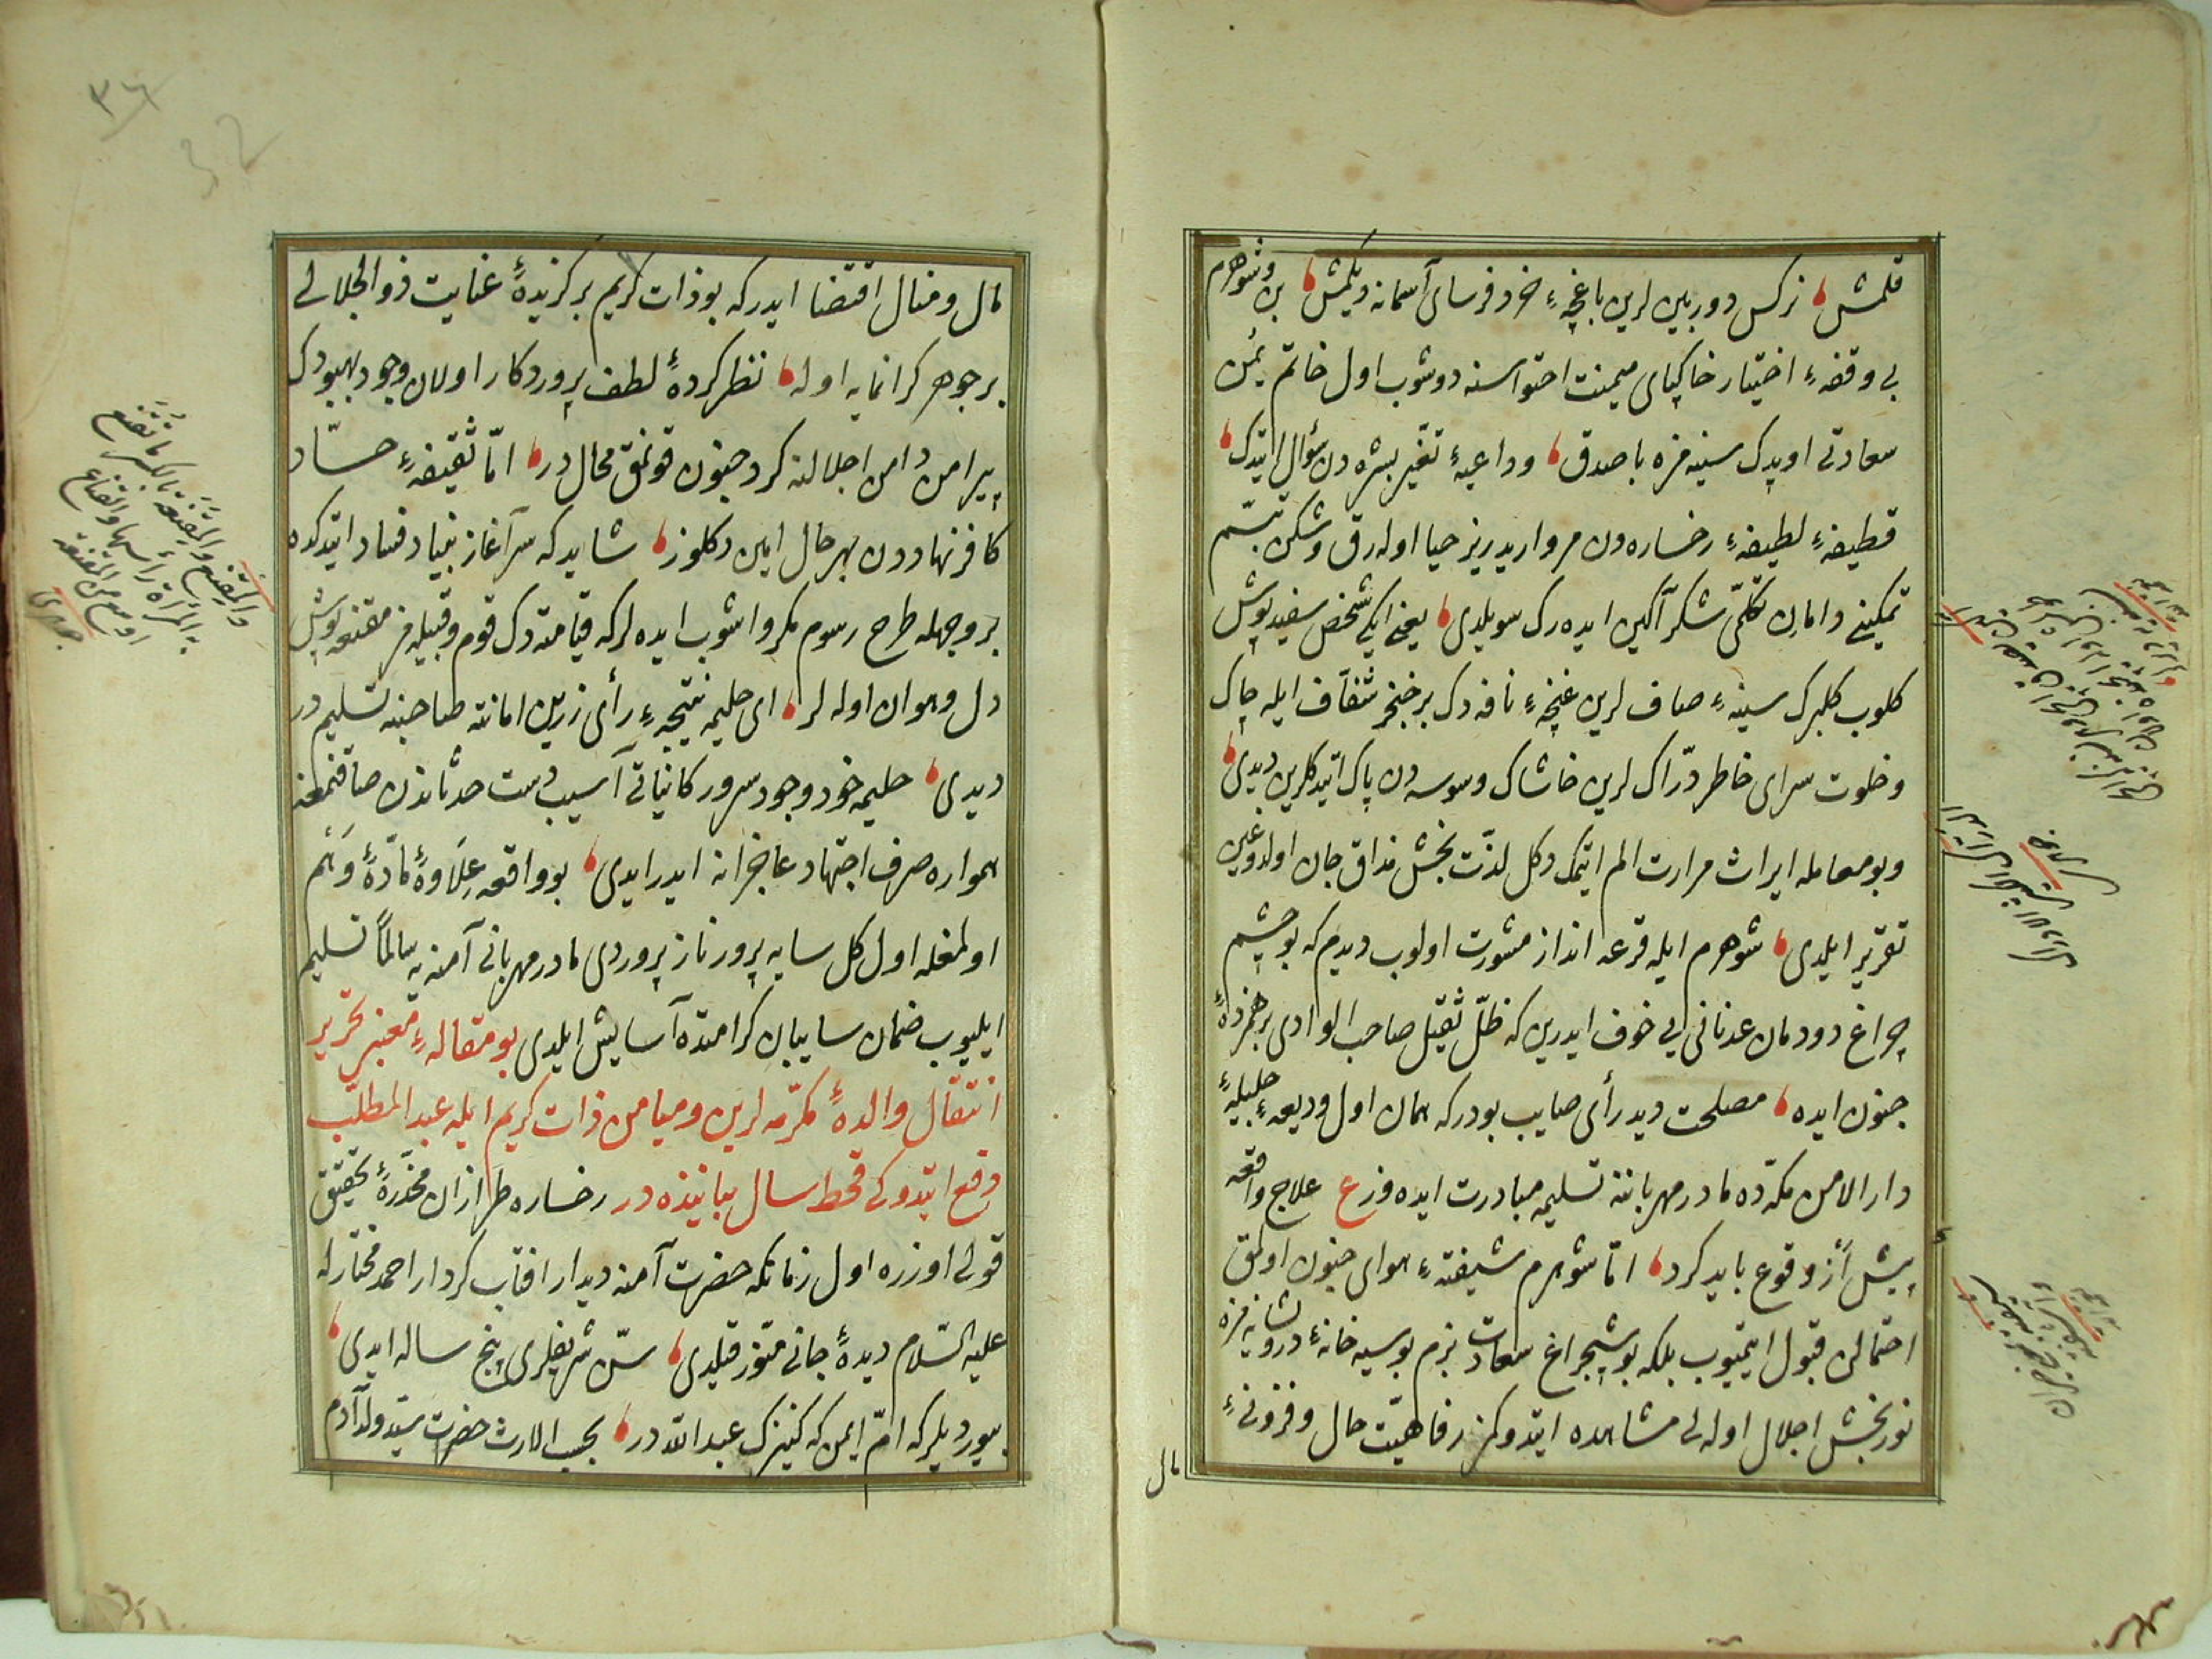 قلمش نركس دوربين لرين باغچهٔ خرد فرساى آسمانه ديكمش بن وشوهرم
بى وقفهٔ اختيار خاكپاى ميمنت احتواسنه دوشوب اول خاتم يمن
سعادتى اوپدك سينه مزه باصدق وداعيهٔ تغيّر بشره دن سؤال ايتدك
قطيفهٔ لطيفهٔ رخساره دن مرواريد ريز حيا اوله رق وشكن تبسّم
تمكينى دامان تكلّمى شكر آكين ايده رك سويلدى يعنى ايكى شخص سفيد پوش
كلوب كلبرك سينهٔ صاف لرين غنچهٔ نافه دك بر خنجر شفّاف ايله چاك
وخلوت سراى خاطر درّاك لرين خاشاك وسوسه دن پاك ايتدكلرين ديدى
وبو معامله ايراث مرارت الم ايتمك دكل لذّت بخش مذاق جان اولدوغين
تقرير ايلدى شوهرم ايله قرعه انداز مشورت اولوب ديدم كه بو چشم
چراغ دودمان عدنانى يى خوف ايدرين كه ظلّ ثقيل صاحب الوادى برهمزدهٔ
جنون ايده مصلحت ديد رأى صايب بودر كه همان اول وديعهٔ جليلهٔ
دار الامن مكّه ده مادر مهرباننه تسليمه مبادرت ايده وز ع علاج واقعه
پيش أز وقوع بايد كرد امّا شوهرم شيفتهٔ هواى جنون اولمق
احتمالن قبول ايتميوب بلكه بو شبچراغ سعادت بزم بو سيه خانهٔ درويشانه مزه
نور بخش اجلال اوله لى مشاهده ايتدوكمز رفاهيّت حال وفزونئ
مال
مال ومنال اقتضا ايدر كه بو ذات كريم بركزيدهٔ عنايت ذو الجلالى
بر جوهر كرانمايه اوله نظر كردهٔ لطف پروردكار اولان وجود بهبودك
پيرامن دامن اجلالنه كرد جنون قونمق محال در امّا ثقيفهٔ حسّاد
كافر نهاددن بهر حال امين دكلوز شايد كه سر آغاز بنياد فساد ايتدكده
بر وجهله طرح رسوم مكر وآشوب ايده لر كه قيامته دك قوم وقبيله مز مقنعه پوش
ذل وهوان اوله لر اى حليمه نتيجهٔ رأى زرين امانتنه صاحبنه تسليم در
ديدى حليمه خود وجود سرور كائناتى آسيب دست حدثاندن صاقنمغه
همواره صرف اجتهاد عاجزانه ايدر ايدى بو واقعه عِلَاوهٔ مادّهٔ وَهْم
اولمغله اول كل سايه پرور ناز پروردى مادر مهربانى آمنه يه سالماً تسليم
ايليوب ضمان سايبان كرامتده آسايش ايلدى بو مقالهٔ معنبر تحرير
انتقال والدهٔ مكرّمه لرين وميامن ذات كريم ايله عبد المطلّب
دفع ايتدوكى قحط سال بياننده در رخساره طرازان مخدّرهٔ تحقيق
قولى اوزره اول زمانكه حضرت آمنه ديدار افتاب كردار احمد مختارله
عليه السّلام ديدهٔ جانى منوّر قيلدى سنّ شريفلرى پنج ساله ايدى
بيورديلر كه امّ ايمن كه كنيزك عبد اللّه در بحسب الارث حضرت سيّد ولد آدم
والمِقْنَع والمِقْنَعَة بالكسر ما تُقَنِّع
به المرأة رأسها والقناع
اوسع من المقنعة
جوهرى
٣٦
32